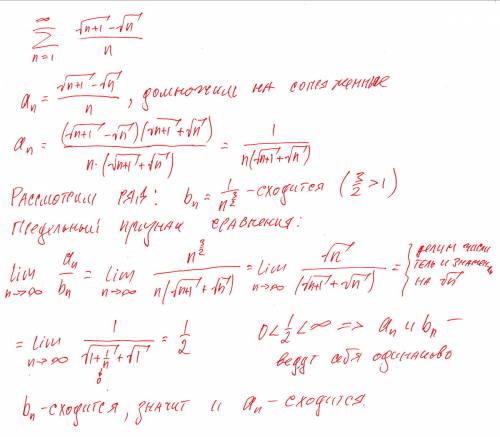 ∞ ∑ n=1 (√(n+1) − √n)/n
aₙ = (√(n+1) − √n)/n, домножим на сопряженные
aₙ = (√(n+1) − √n)(√(n+1) + √n)/(n·(√(n+1) + √n)) = 1/(n(√(n+1) + √n))
Рассмотрим ряд: bₙ = 1/n^(3/2) - сходится (3/2 > 1)
Предельный признак сравнения:
lim n→∞ aₙ/bₙ = lim n→∞ n^(3/2)/(n(√(n+1) + √n)) = lim n→∞ √n/(√(n+1) + √n) = { делим числитель и знаменат на √n }
= lim n→∞ 1/(√(1 + 1/n) + √1) = 1/2 0 < 1/2 < ∞ => aₙ и bₙ –
0 ведут себя одинаково
bₙ - сходится, значит и aₙ - сходится.